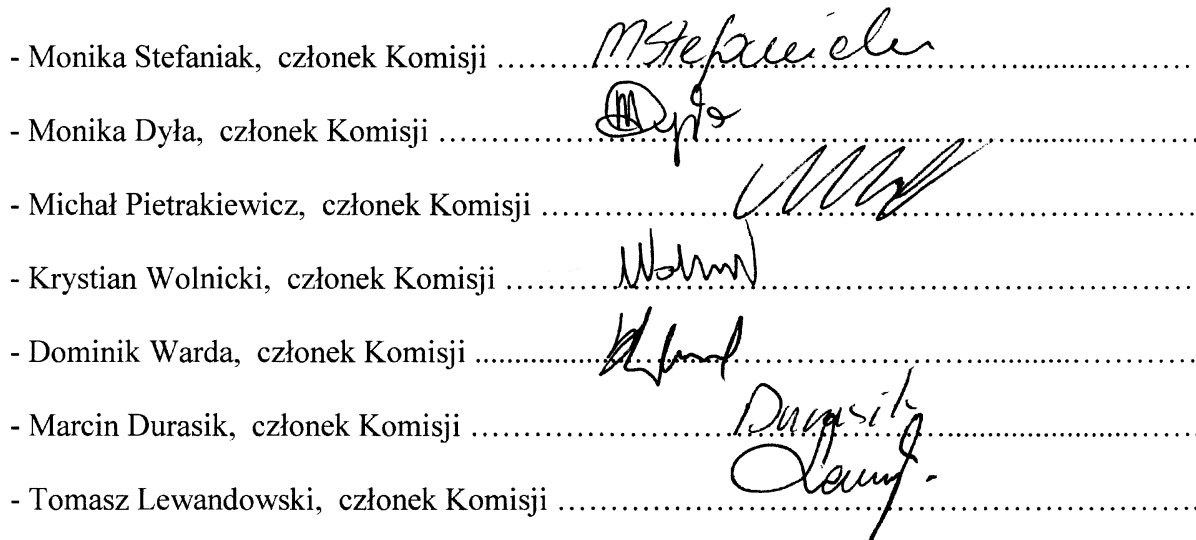 - Monika Stefaniak, członek Komisji ........................ MStefaniak
- Monika Dyła, członek Komisji ........................ MDyła
- Michał Pietrakiewicz, członek Komisji ........................
- Krystian Wolnicki, członek Komisji ........................
- Dominik Warda, członek Komisji ........................
- Marcin Durasik, członek Komisji ........................ Durasik
- Tomasz Lewandowski, członek Komisji ........................